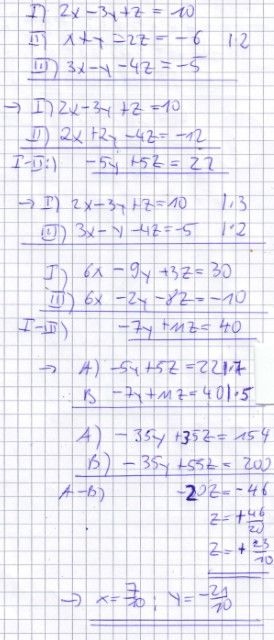 I) 2x-3y+z = 10
II) x+y-2z = -6 |·2
III) 3x-y-4z = -5
→ I) 2x-3y+z = 10
II) 2x+2y-4z = -12
I-II:) -5y+5z = 22
→ I) 2x-3y+z = 10 |·3
III) 3x-y-4z = -5 |·2
I) 6x-9y+3z = 30
III) 6x-2y-8z = -10
I-III) -7y+11z = 40
→ A) -5y+5z = 22 |·7
B -7y+11z = 40 |·5
A) -35y+35z = 154
B) -35y+55z = 200
A-B) -20z = -46
z = +46/20
z = +23/10
→ x = 7/10 ; y = -21/10